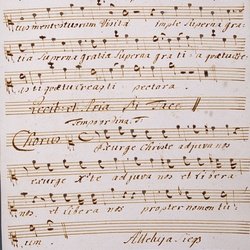 tuorum visita imple superna gra
tia superna gratia superna grati a quae tu cre
as ti quae tu creasti pectora.
recit: et Aria Tacet
Tempo ordina:
Chorus
Exurge Christe adjuva nos
exurge Xte adjuva nos et libera
nos, et libera nos propter nomen tu:
um.
Alleluja: ieps